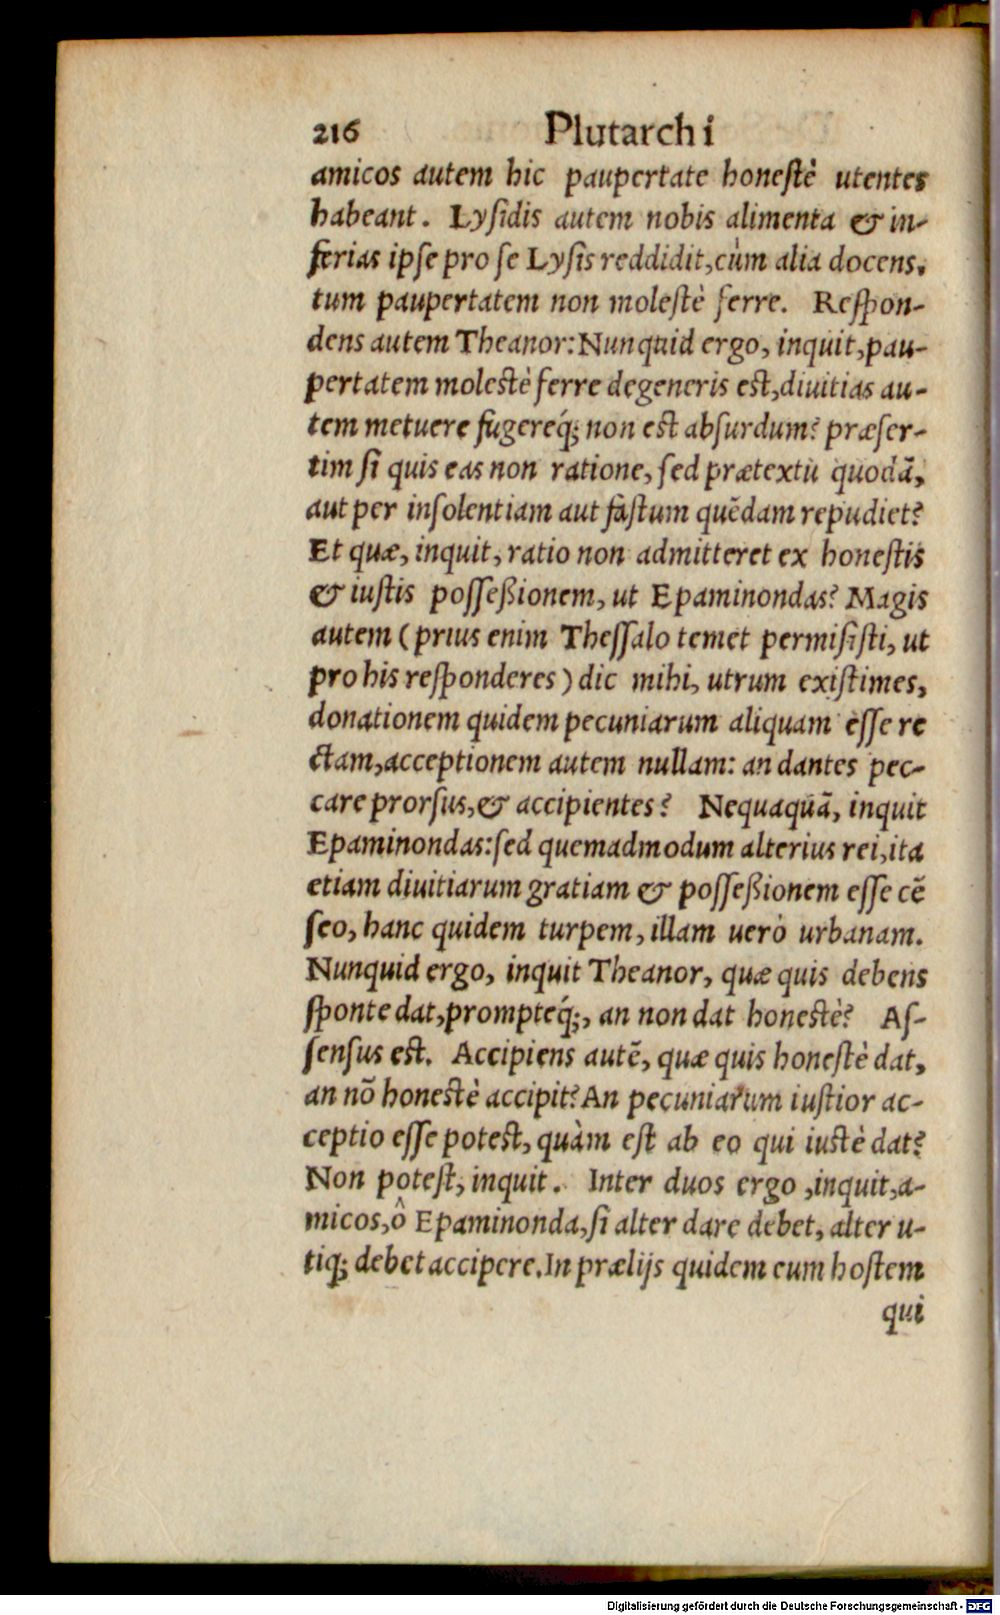 216 Plutarchi
amicos autem hic paupertate honestè utentes
habeant. Lysidis autem nobis alimenta & in-
ferias ipse pro se Lysis reddidit, cùm alia docens,
tum paupertatem non molestè ferre. Respon-
dens autem Theanor: Nunquid ergo, inquit, pau-
pertatem molestè ferre degeneris est, diuitias au-
tem metuere fugereq́; non est absurdum? præser-
tim si quis eas non ratione, sed prætextu quodã,
aut per insolentiam aut fastum quẽdam repudiet?
Et quæ, inquit, ratio non admitteret ex honestis
& iustis posseßionem, ut Epaminondas? Magis
autem (prius enim Thessalo temet permisisti, ut
pro his responderes) dic mihi, utrum existimes,
donationem quidem pecuniarum aliquam esse re
ctam, acceptionem autem nullam: an dantes pec-
care prorsus, & accipientes? Nequaquã, inquit
Epaminondas: sed quemadmodum alterius rei, ita
etiam diuitiarum gratiam & posseßionem esse cẽ
seo, hanc quidem turpem, illam uerò urbanam.
Nunquid ergo, inquit Theanor, quæ quis debens
sponte dat, prompteq́;, an non dat honestè? As-
sensus est. Accipiens autẽ, quæ quis honestè dat,
an nõ honestè accipit? An pecuniarum iustior ac-
ceptio esse potest, quàm est ab eo qui iustè dat?
Non potest, inquit. Inter duos ergo, inquit, a-
micos, ô Epaminonda, si alter dare debet, alter u-
tiq; debet accipere. In prælijs quidem eum hostem
qui
Digitalisierung gefördert durch die Deutsche Forschungsgemeinschaft - DFG